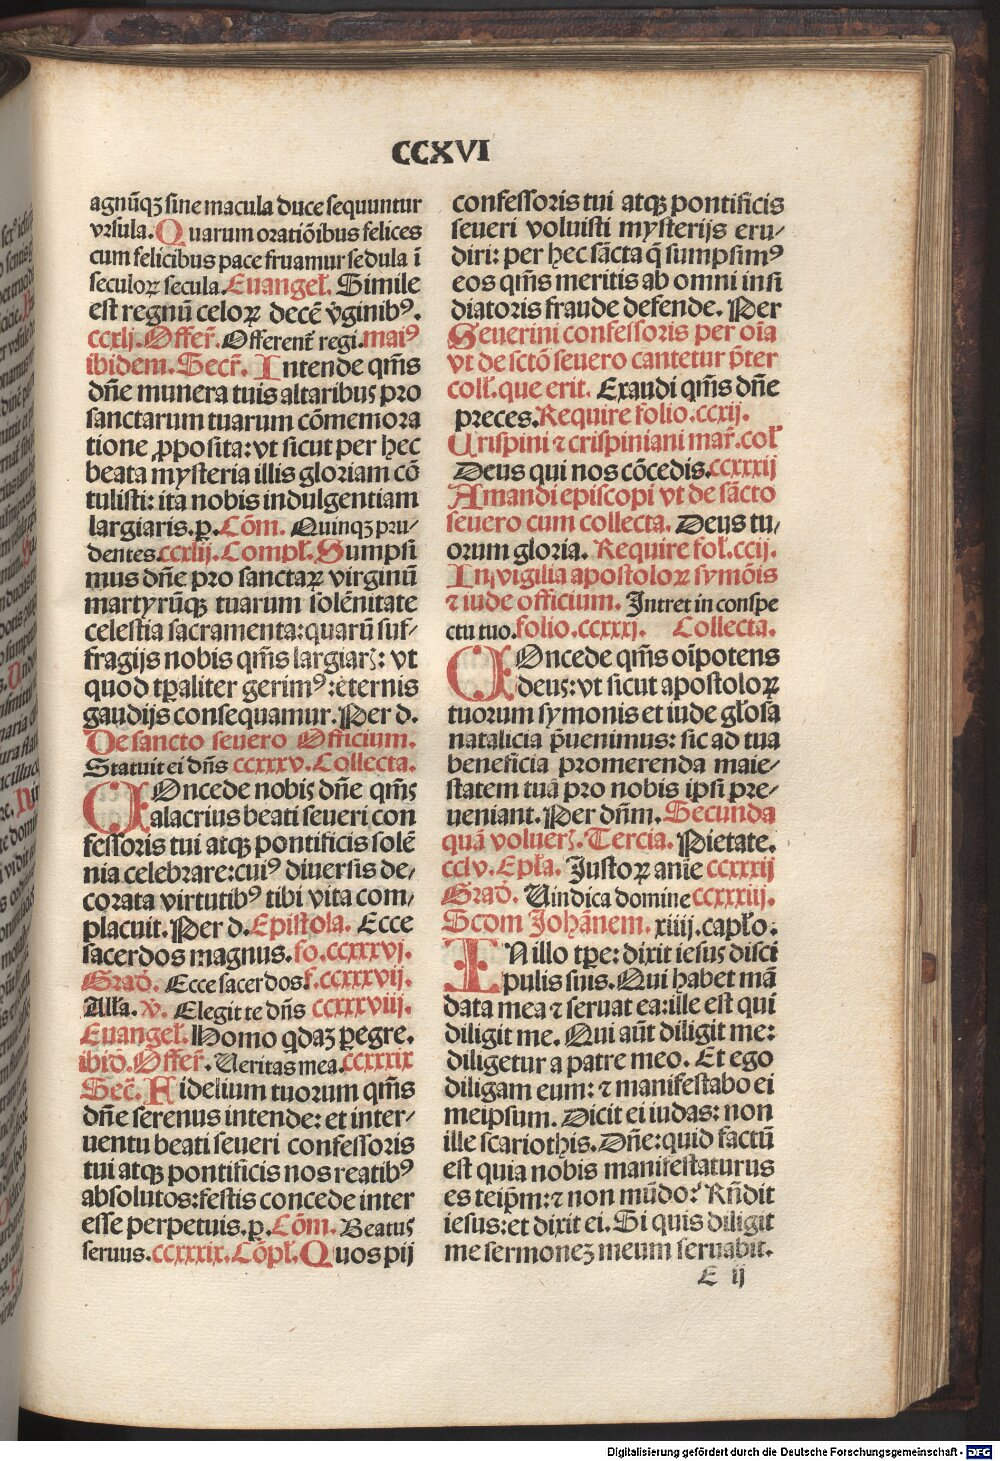 CCXVI
agnūqꝫ sine macula duce sequuntur
vrsula. Quarum oratiōibus felices
cum felicibus pace fruamur sedula ī
seculoꝝ secula. Euangel̄. Simile
est regnū celoꝝ decē v̄ginibꝰ.
ccxlij. Offer̄. Offerent̄ regi. maiꝰ
ibidem. Secr̄. Intende qm̄s
dn̄e munera tuis altaribus pro
sanctarum tuarum cōmemora
tione ꝓposita: vt sicut per hec
beata mysteria illis gloriam cō
tulisti: ita nobis indulgentiam
largiaris. p. Cōm. Quinqꝫ pru⸗
dentes. ccxlij. Compl̄. Sumpsi
mus dn̄e pro sanctaꝝ virginū
martyrūqꝫ tuarum solēnitate
celestia sacramenta: quarū suf⸗
fragijs nobis qm̄s largiarꝭ: vt
quod tꝑaliter gerimꝰ: eternis
gaudijs consequamur. Per d.
De sancto seuero Officium.
Statuit ei dn̄s ccxxxv. Collecta.
COncede nobis dn̄e qm̄s
alacrius beati seueri con
fessoris tui atqꝫ pontificis solē
nia celebrare: cuiꝰ diuersis de⸗
corata virtutibꝰ tibi vita com⸗
placuit. Per d. Epistola. Ecce
sacerdos magnus. fo. ccxxxvj.
Grad̄. Ecce sacerdos. f. ccxxxvij.
Alla. v. Elegit te dn̄s ccxxxviij.
Euangel̄. Homo qdaꝫ ꝑegre.
ibid̄. Offer̄. Ueritas mea. ccxxxix
Secr̄. Fidelium tuorum qm̄s
dn̄e serenus intende: et inter⸗
uentu beati seueri confessoris
tui atqꝫ pontificis nos reatibꝰ
absolutos: festis concede inter
esse perpetuis. p. Cōm. Beatus
seruus. ccxxxix. Cōpl̄. Quos pij
confessoris tui atqꝫ pontificis
seueri voluisti mysterijs eru⸗
diri: per hec sācta q̄ sumpsimꝰ
eos qm̄s meritis ab omni insi
diatoris fraude defende. Per
Seuerini confessoris per oīa
vt de sctō seuero cantetur p̄ter
coll̄. que erit. Exaudi qm̄s dn̄e
preces. Require folio. ccxij.
Crispini ⁊ crispiniani mar̄. col̄
Deus qui nos cōcedis. ccxxxij
Amandi episcopi vt de sācto
seuero cum collecta. Deus tu⸗
orum gloria. Require fol̄. ccij.
In vigilia apostoloꝝ symōis
⁊ iude officium. Intret in conspe
ctu tuo. folio. ccxxxj. Collecta.
COncede qm̄s oīpotens
deus: vt sicut apostoloꝝ
tuorum symonis et iude gl̄osa
natalicia p̄uenimus: sic ad tua
beneficia promerenda maie⸗
statem tuā pro nobis ipsi pre⸗
ueniant. Per dn̄m. Secunda
quā voluerꝭ. Tercia. Pietate.
cclv. Epl̄a. Justoꝝ anīe ccxxxij
Grad̄. Uindica domine ccxxxiij.
Scdm Johānem. xiiij. capl̄o.
IN illo tꝑe: dixit iesus disci
pulis suis. Qui habet mā
data mea ⁊ seruat ea: ille est qui
diligit me. Qui aūt diligit me:
diligetur a patre meo. Et ego
diligam eum: ⁊ manifestabo ei
meipsum. Dicit ei iudas: non
ille scariothis. Dn̄e: quid factū
est quia nobis manifestaturus
es teip̄m: ⁊ non mūdo? Rn̄dit
iesus: et dixit ei. Si quis diligit
me sermoneꝫ meum seruabit.
E ij
Digitalisierung gefördert durch die Deutsche Forschungsgemeinschaft - DFG